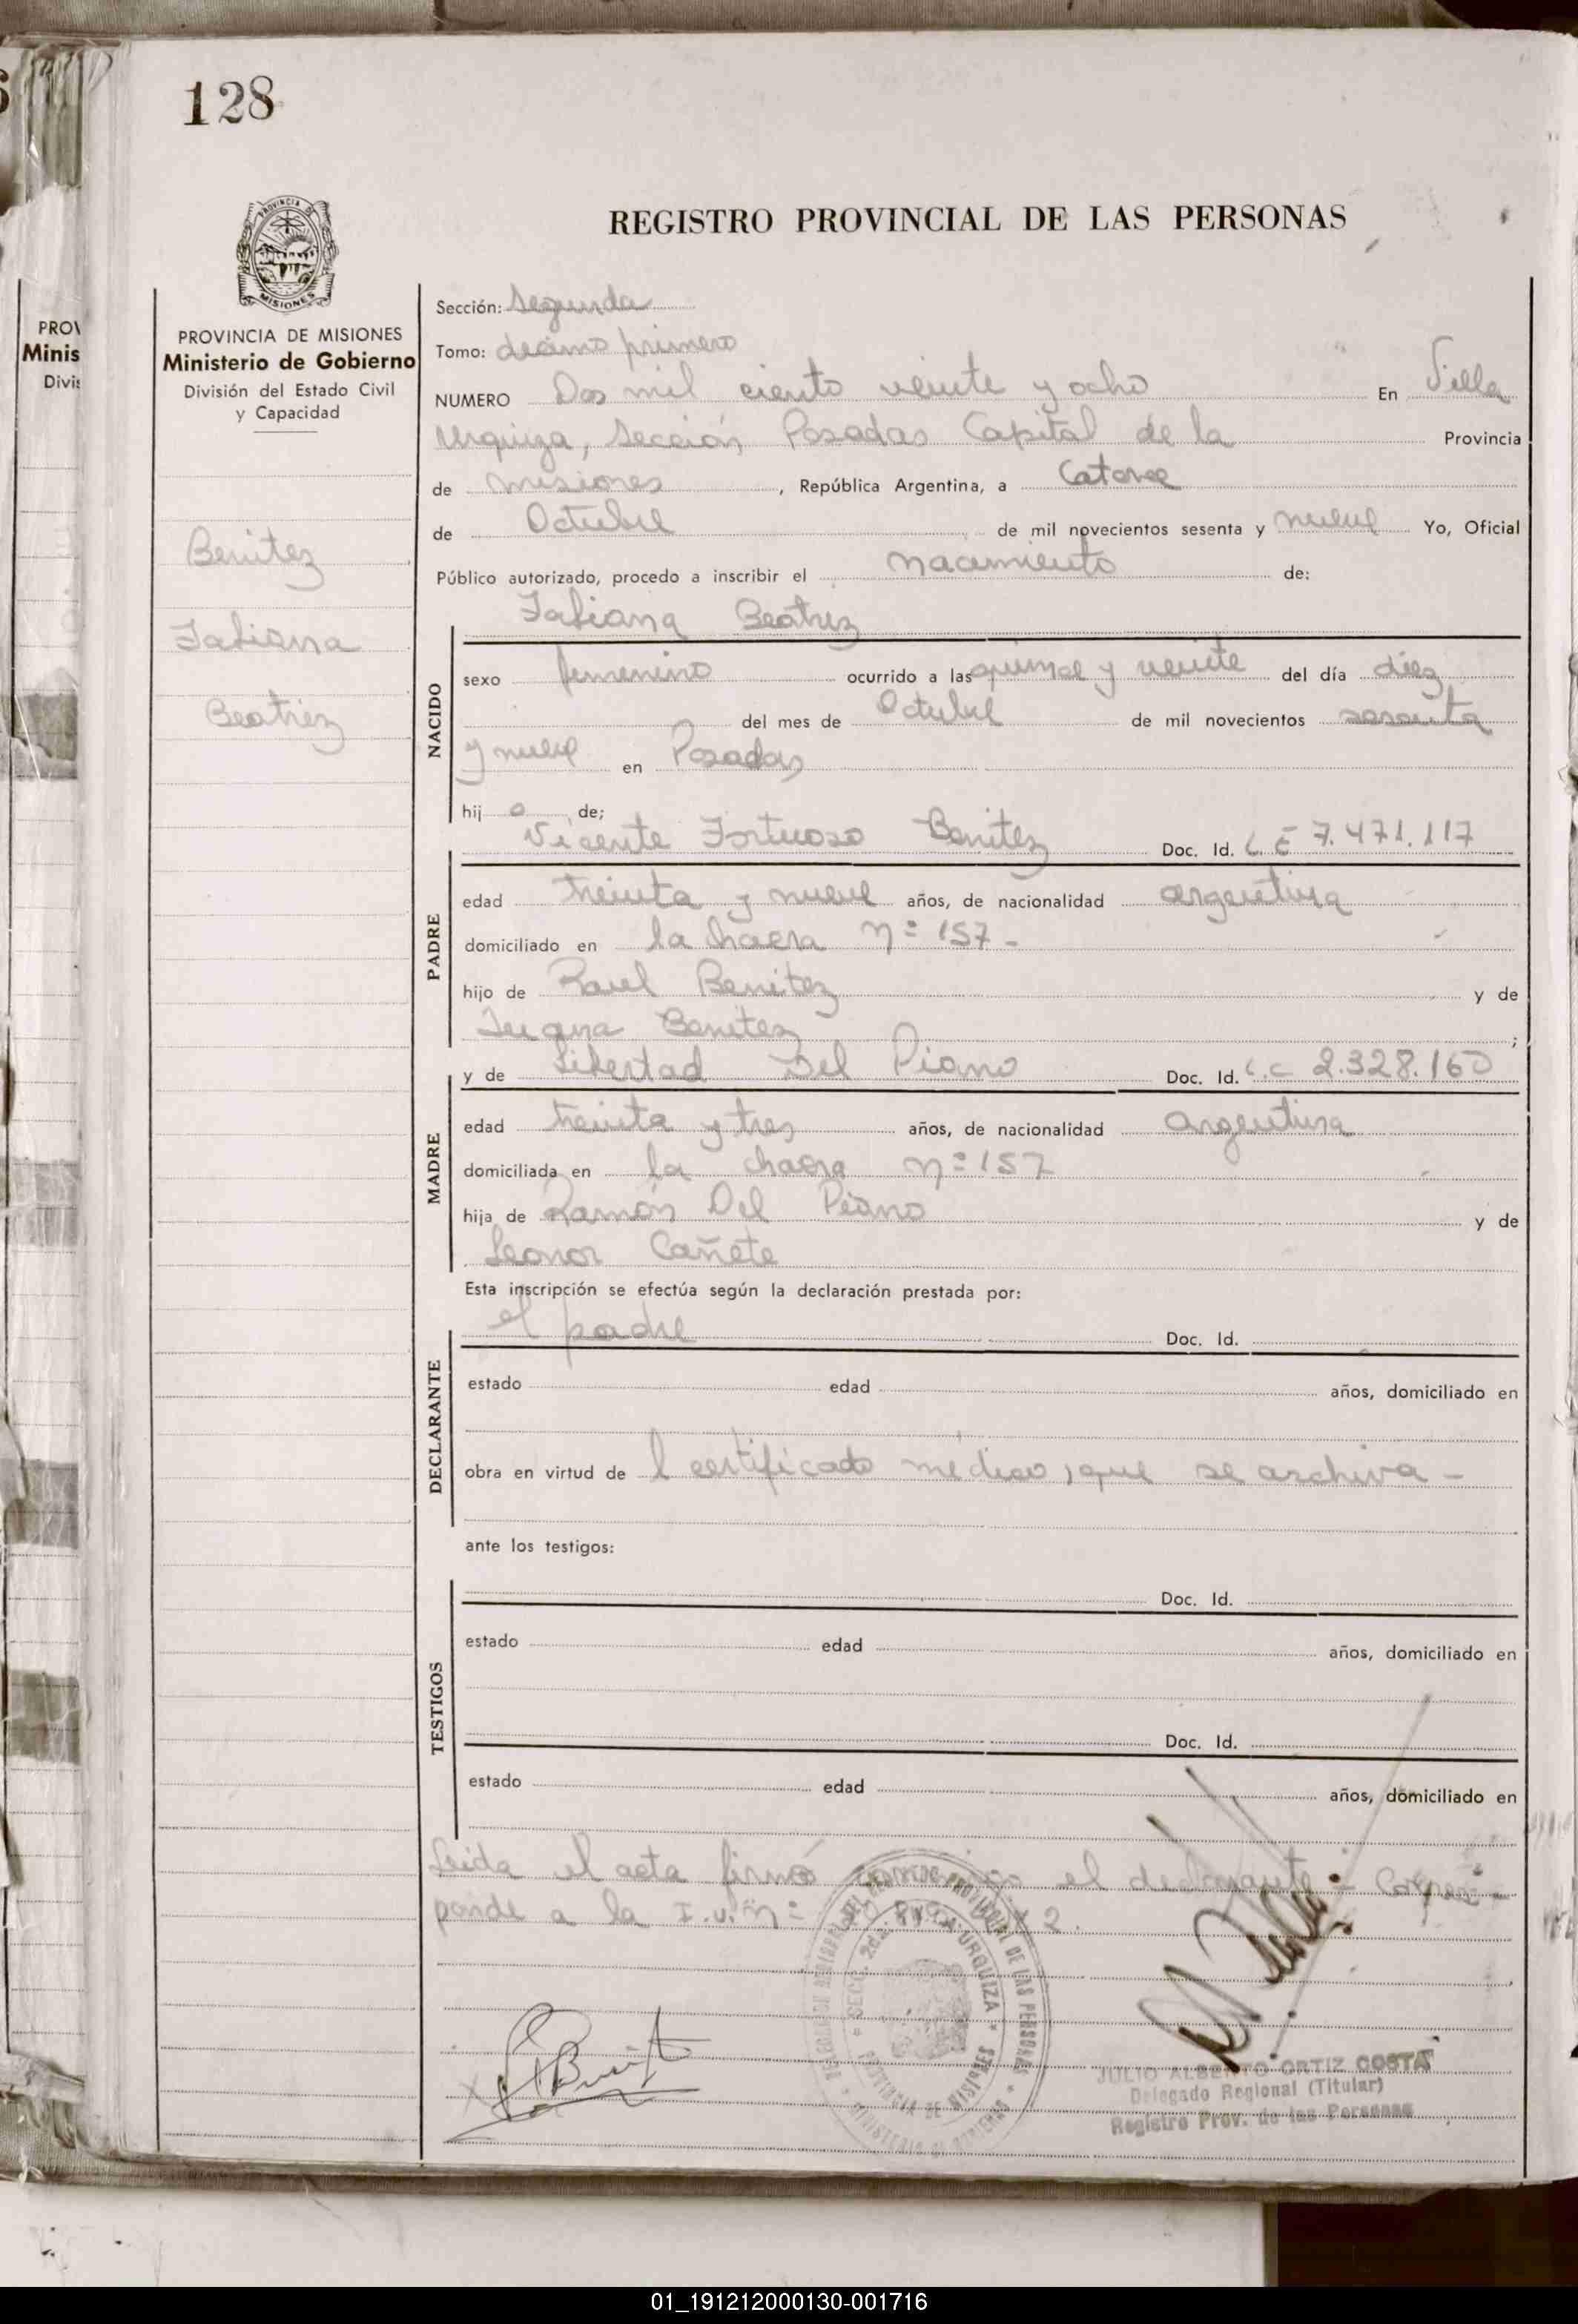 128
REGISTRO PROVINCIAL DE LAS PERSONAS
PROVINCIA DE MISIONES
Ministerio de Gobierno
División del Estado Civil
y Capacidad
Benitez
Fabiana
Beatriz
Sección: Segunda
Tomo: décimo primero
NUMERO Dos mil ciento veinte y ocho En Villa
Urquiza, Sección, Posadas Capital de la Provincia
de Misiones, República Argentina, a Catorce
de Octubre de mil novecientos sesenta y nueve Yo, Oficial
Público autorizado, procedo a inscribir el nacimiento de:
Fabiana Beatriz
NACIDO
sexo femenino ocurrido a las quince y veinte del día diez
del mes de Octubre de mil novecientos sesenta
y nueve en Posadas
hij o de;
Vicente Fortuoso Benitez Doc. Id. L.E 7.471.117
PADRE
edad treinta y nueve años, de nacionalidad argentina
domiciliado en la chacra nº 157-
hijo de Raul Benitez y de
Juana Benitez ;
y de Libertad Del Piano Doc. Id. L.C 2.328.160
MADRE
edad treinta y tres años, de nacionalidad argentina
domiciliada en la chacra nº 157
hija de Ramón Del Piano y de
Leonor Cañete
Esta inscripción se efectúa según la declaración prestada por:
el padre Doc. Id.
DECLARANTE
estado edad años, domiciliado en
obra en virtud de l certificado médico, que se archiva -
ante los testigos:
Doc. Id.
TESTIGOS
estado edad años, domiciliado en
Doc. Id.
estado edad años, domiciliado en
Leida el acta firmó conmigo el declarante - Corres-
ponde a la I.U. nº 2.
JULIO ALBERTO ORTIZ COSTA
Delegado Regional (Titular)
Registro Prov. de las Personas
01_191212000130-001716